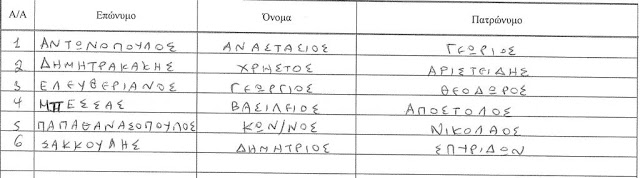 Α/Α Επώνυμο Όνομα Πατρώνυμο
1 ΑΝΤΩΝΟΠΟΥΛΟΣ ΑΝΑΣΤΑΣΙΟΣ ΓΕΩΡΙΟΣ
2 ΔΗΜΗΤΡΑΚΑΚΗΣ ΧΡΗΣΤΟΣ ΑΡΙΣΤΕΙΔΗΣ
3 ΕΛΕΥΘΕΡΙΑΝΟΣ ΓΕΩΡΓΙΟΣ ΘΕΟΔΩΡΟΣ
4 ΜΠΕΣΣΑΣ ΒΑΣΙΛΕΙΟΣ ΑΠΟΣΤΟΛΟΣ
5 ΠΑΠΑΘΑΝΑΣΟΠΟΥΛΟΣ ΚΩΝ/ΝΟΣ ΝΙΚΟΛΑΟΣ
6 ΣΑΚΚΟΥΛΗΣ ΔΗΜΗΤΡΙΟΣ ΣΠΥΡΙΔΩΝ